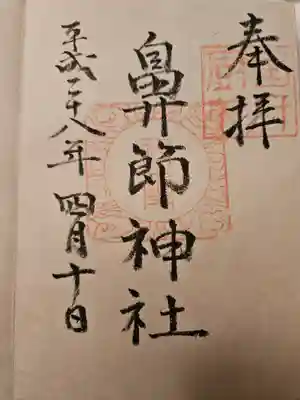 奉拝
鼻節神社
平成二十八年四月十日